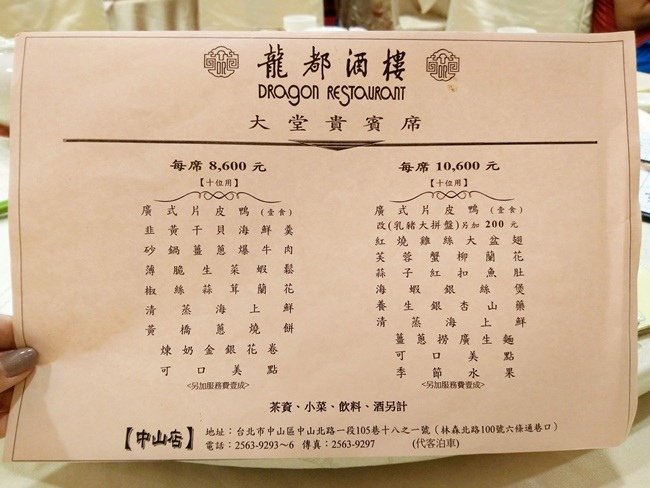 龍都酒樓
DRAGON RESTAURANT
大堂貴賓席
每席 8,600 元
【十位用】
廣式片皮鴨(壹食)
韭黃干貝海鮮羹
砂鍋薑蔥爆牛肉
薄脆生菜蝦鬆
椒絲蒜茸蘭花
清蒸海上鮮
黃橋蔥燒餅
煉奶金銀花卷
可口美點
<另加服務費壹成>
每席 10,600 元
【十位用】
廣式片皮鴨(壹食)
改(乳豬大拼盤)另加 200 元
紅燒雞絲大盆翅
芙蓉蟹柳蘭花
蒜子紅扣魚肚
海蝦銀絲煲
養生銀杏山藥
清蒸海上鮮
薑蔥撈廣生麵
可口美點
季節水果
<另加服務費壹成>
茶資、小菜、飲料、酒另計
【中山店】
地址:台北市中山區中山北路一段105巷十八之一號(林森北路100號六條通巷口)
電話:2563-9293~6 傳真:2563-9297 (代客泊車)